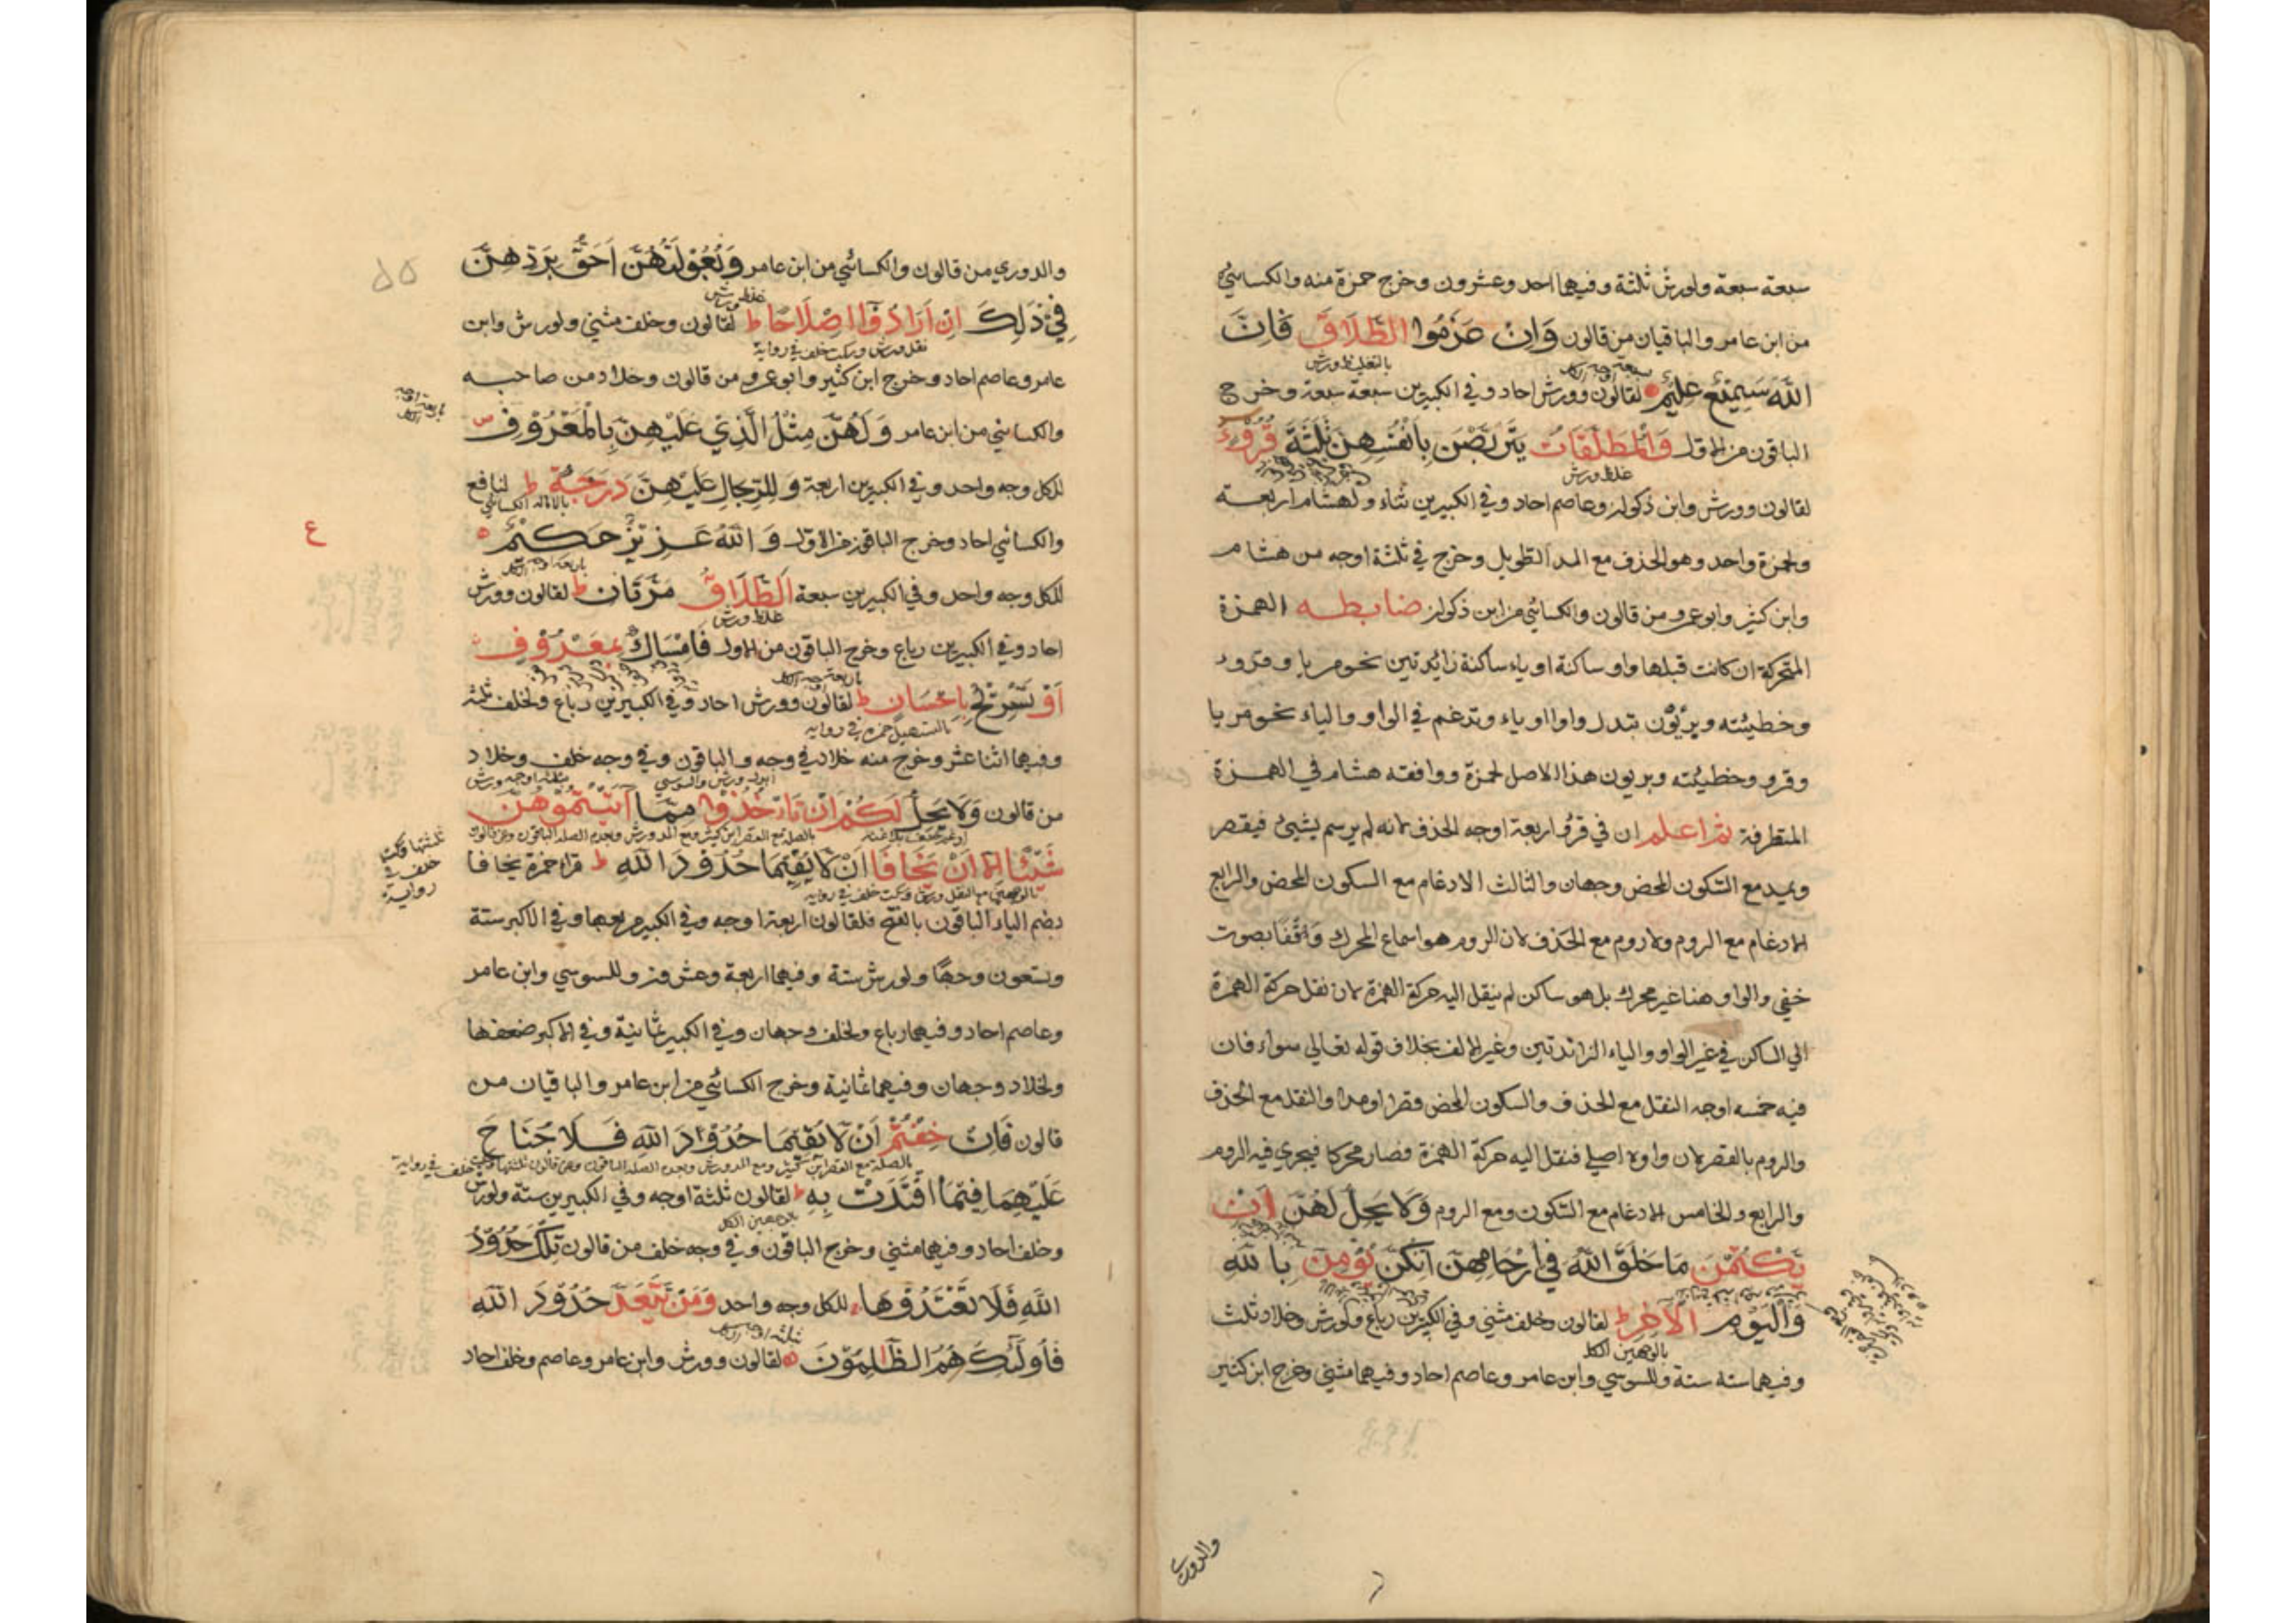 سبعة سبعة ولورش ثلثة وفيهما احد وعشرون وخرج حمزة منه والكسائي
من ابن عامر والباقيان من قالون وَاِنْ عَزَمُوا الطَّلَاقَ فَاِنَّ
بالتغليظ ورش
اللّٰهَ سَمِيْعٌ عَلِيْمٌ لقالون وورش احاد وفي الكبيرين سبعة سبعة وخرج
الباقون من الاول وَالْمُطَلَّقَاتُ يَتَرَبَّصْنَ بِاَنْفُسِهِنَّ ثَلٰثَةَ قُرُوْءٍ
غلظ ورش
لقالون وورش وابن ذكوان وعاصم احاد وفي الكبيرين ثناء ولهشام اربعة
ولحمزة واحد وهو الحذف مع المد الطويل وخرج في ثلثة اوجه من هشام
وابن كثير وابو عمرو من قالون والكسائي من ابن ذكوان ضابطه الهمزة
المتحركة ان كانت قبلها واو ساكنة او ياء ساكنة زائدتين نحو مريا وقروء
وخطيئته وبريؤن تبدل واوا او ياء وتدغم في الواو والياء نحو مريا
وقرو وخطيئته وبريون هذا الاصل لحمزة ووافقه هشام في الهمزة
المتطرفة ثم اعلم ان في قرؤ اربعة اوجه الحذف لانه لم يرسم بشيئ فيقصر
ويمد مع السكون المحض وجهان والثالث الادغام مع السكون المحض والرابع
الادغام مع الروم ولا روم مع الحذف لان الروم هو اسماع المحرك واقفا بصوت
خفي والواو هنا غير محرك بل هو ساكن لم ينقل اليه حركة الهمزة لان نقل حركة الهمزة
الي الساكن في غير الواو والياء الزائدتين وغير الالف بخلاف قوله تعالي سواء فان
فيه خمسه اوجه النقل مع الحذف والسكون المحض قصرا ومدا والنقل مع الحذف
والروم بالقصر لان واوه اصلي فنقل اليه حركة الهمزة فصار محركا فيجري فيه الروم
والرابع والخامس الادغام مع السكون ومع الروم وَلَا يَحِلُّ لَهُنَّ اَنْ
يَّكْتُمْنَ مَا خَلَقَ اللّٰهُ فِي اَرْحَامِهِنَّ اِنْ كُنَّ يُؤْمِنَّ بِاللّٰهِ
وَالْيَوْمِ الْاٰخِرِ ط لقالون وخلف مثني وفي الكبيرين رباع ولورش وخلاد ثلث
بالوجهين الكل
وفيهما ستة ستة وللسوسي وابن عامر وعاصم احاد وفيهما مثني وخرج ابن كثير
والدوري
والدوري من قالون والكسائي من ابن عامر وَبُعُوْلَتُهُنَّ اَحَقُّ بِرَدِّهِنَّ
غلظ ورش
فِيْ ذٰلِكَ اِنْ اَرَادُوْا اِصْلَاحًا ط لقالون وخلف مثني ولورش وابن
نقل ورش وسكت خلف في رواية
عامر وعاصم احاد وخرج ابن كثير وابو عمرو من قالون وخلاد من صاحبه
والكسائي من ابن عامر وَلَهُنَّ مِثْلُ الَّذِيْ عَلَيْهِنَّ بِالْمَعْرُوْفِ
للكل وجه واحد وفي الكبيرين اربعة وَلِلرِّجَالِ عَلَيْهِنَّ دَرَجَةٌ ط لنافع
بالاماله الكسائي
والكسائي احاد وخرج الباقون من الاول وَاللّٰهُ عَزِيْزٌ حَكِيْمٌ
ع
للكل وجه واحد وفي الكبيرين سبعة اَلطَّلَاقُ مَرَّتَانِ ط لقالون وورش
غلظ ورش
احاد وفي الكبيرين رباع وخرج الباقون من الاول فَاِمْسَاكٌ بِمَعْرُوْفٍ
اَوْ تَسْرِيْحٌ بِاِحْسَانٍ ط لقالون وورش احاد وفي الكبيرين رباع ولخلف ثلثة
بالتسهيل حمزه في روايه
وفيهما اثنا عشر وخرج منه خلاد في وجه والباقون وفي وجه خلف وخلاد
ابدل ورش والسوسي
من قالون وَلَا يَحِلُّ لَكُمْ اَنْ تَاْخُذُوْا مِمَّا اٰتَيْتُمُوْهُنَّ
شَيْئًا اِلَّا اَنْ يَّخَافَا اَنْ لَّا يُقِيْمَا حُدُوْدَ اللّٰهِ ط قرا حمزة يخافا
بضم الياء الباقون بالفتح فلقالون اربعة اوجه وفي الكبير مربعها وفي الاكبر ستة
وتسعون وجها ولورش ستة وفيهما اربعة وعشرون وللسوسي وابن عامر
وعاصم احاد وفيهما رباع ولخلف وجهان وفي الكبير ثمانية وفي الاكبر ضعفها
ولخلاد وجهان وفيهما ثمانية وخرج الكسائي من ابن عامر والباقيان من
قالون فَاِنْ خِفْتُمْ اَنْ لَّا يُقِيْمَا حُدُوْدَ اللّٰهِ فَلَا جُنَاحَ
عَلَيْهِمَا فِيْمَا افْتَدَتْ بِهِ ط لقالون ثلثة اوجه وفي الكبيرين ستة ولورش
بوجهين الكل
وخلف احاد وفيهما مثني وخرج الباقون وفي وجه خلف من قالون تِلْكَ حُدُوْدُ
اللّٰهِ فَلَا تَعْتَدُوْهَا للكل وجه واحد وَمَنْ يَّتَعَدَّ حُدُوْدَ اللّٰهِ
فَاُولٰٓئِكَ هُمُ الظّٰلِمُوْنَ لقالون وورش وابن عامر وعاصم وخلف احاد